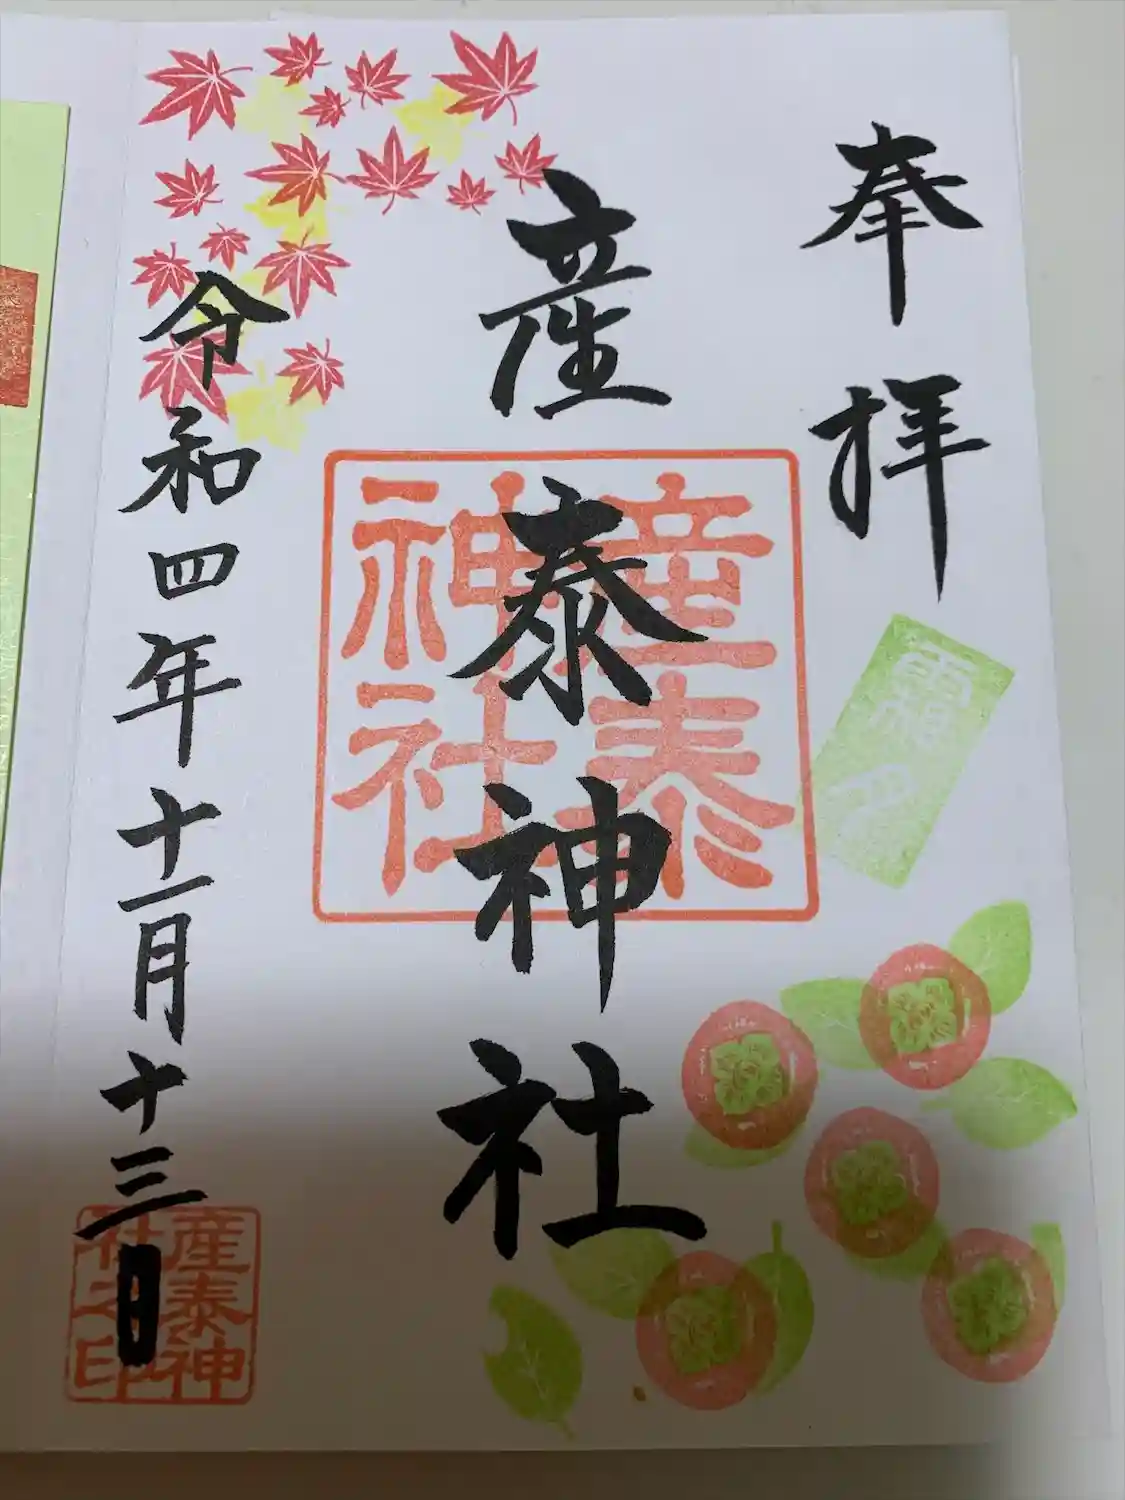 奉拝
霜月
産泰神社
産泰神社
令和四年十一月十三日
産泰神社之印